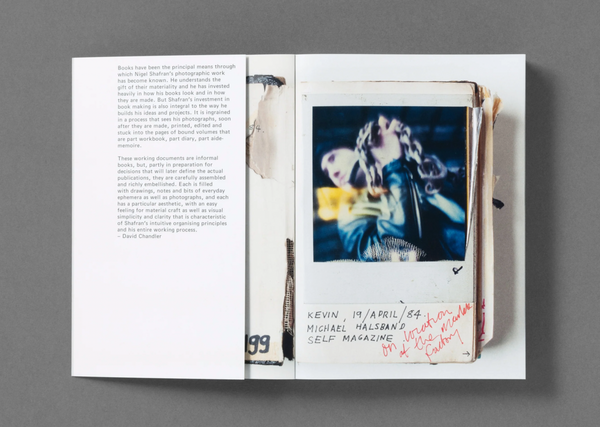 Books have been the principal means through
which Nigel Shafran's photographic work
has become known. He understands the
gift of their materiality and he has invested
heavily in how his books look and in how
they are made. But Shafran's investment in
book making is also integral to the way he
builds his ideas and projects. It is ingrained
in a process that sees his photographs, soon
after they are made, printed, edited and
stuck into the pages of bound volumes that
are part workbook, part diary, part aide-
memoire.
These working documents are informal
books, but, partly in preparation for
decisions that will later define the actual
publications, they are carefully assembled
and richly embellished. Each is filled
with drawings, notes and bits of everyday
ephemera as well as photographs, and each
has a particular aesthetic, with an easy
feeling for material craft as well as visual
simplicity and clarity that is characteristic
of Shafran's intuitive organising principles
and his entire working process.
– David Chandler
99
KEVIN, 19/APRIL/84.
MICHAEL HALSBAND
SELF MAGAZINE
on location
at the
factory